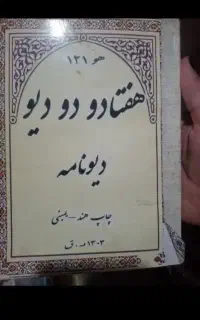 هو ۱۲۱
هفتادو دو دیو
دیونامه
چاپ هند - بمبئی
۱۳۰۳ ه.ق